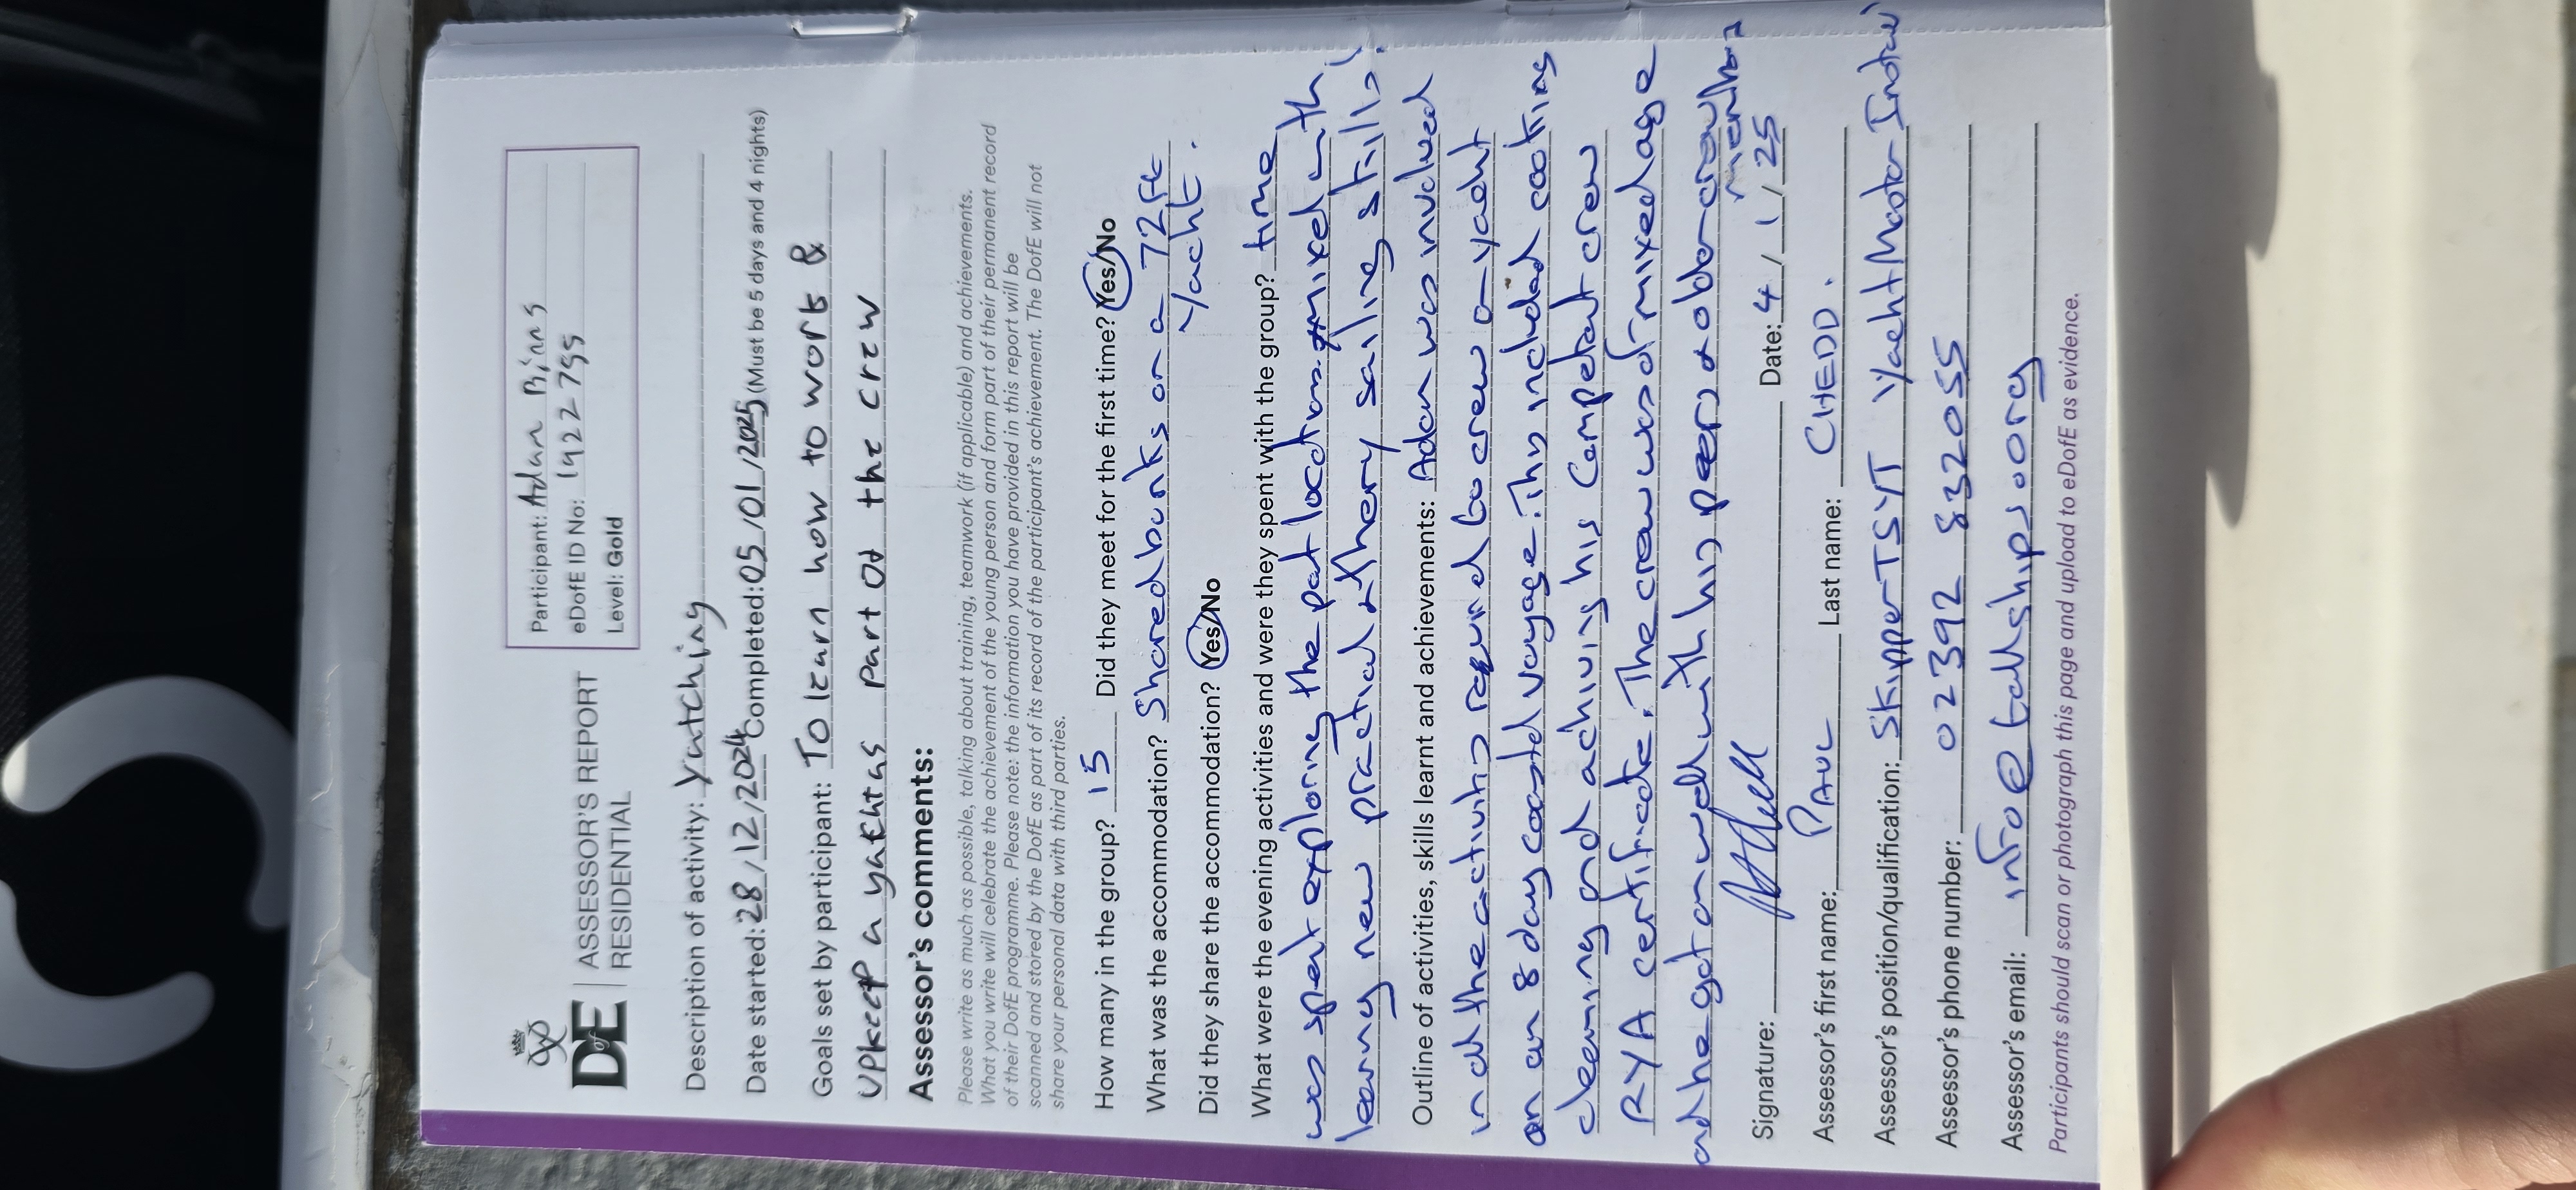 DofE | ASSESSOR'S REPORT
RESIDENTIAL
Participant: Adan Binns
eDofE ID No: 1922799
Level: Gold
Description of activity: Yatching
Date started: 28/12/2024 Completed: 05/01/2025 (Must be 5 days and 4 nights)
Goals set by participant: To learn how to work &
upkeep a yahtas part of the crew
Assessor's comments:
Please write as much as possible, talking about training, teamwork (if applicable) and achievements.
What you write will celebrate the achievement of the young person and form part of their permanent record
of their DofE programme. Please note: the information you have provided in this report will be
scanned and stored by the DofE as part of its record of the participant's achievement. The DofE will not
share your personal data with third parties.
How many in the group? 15 Did they meet for the first time? Yes/No
What was the accommodation? Shared bunks on a 72ft
Yacht.
Did they share the accommodation? Yes/No
What were the evening activities and were they spent with the group? time
was spent exploring the port locations mixed with
learning new practical & theory sailing skills!
Outline of activities, skills learnt and achievements: Adan was involved
in all the activities required to crew a yacht
on an 8 day coastal voyage. This included cooking
cleaning and achiving his Competant crew
RYA certificate. The crew was of mixed age
and he got on well with his peers & older crew
members
Signature: Date: 4/1/25
Assessor's first name: PAUL Last name: CHEDD.
Assessor's position/qualification: Skipper TSYT Yacht Master
Assessor's phone number: 02392 832055
Assessor's email: info@tallships.org
Participants should scan or photograph this page and upload to eDofE as evidence.